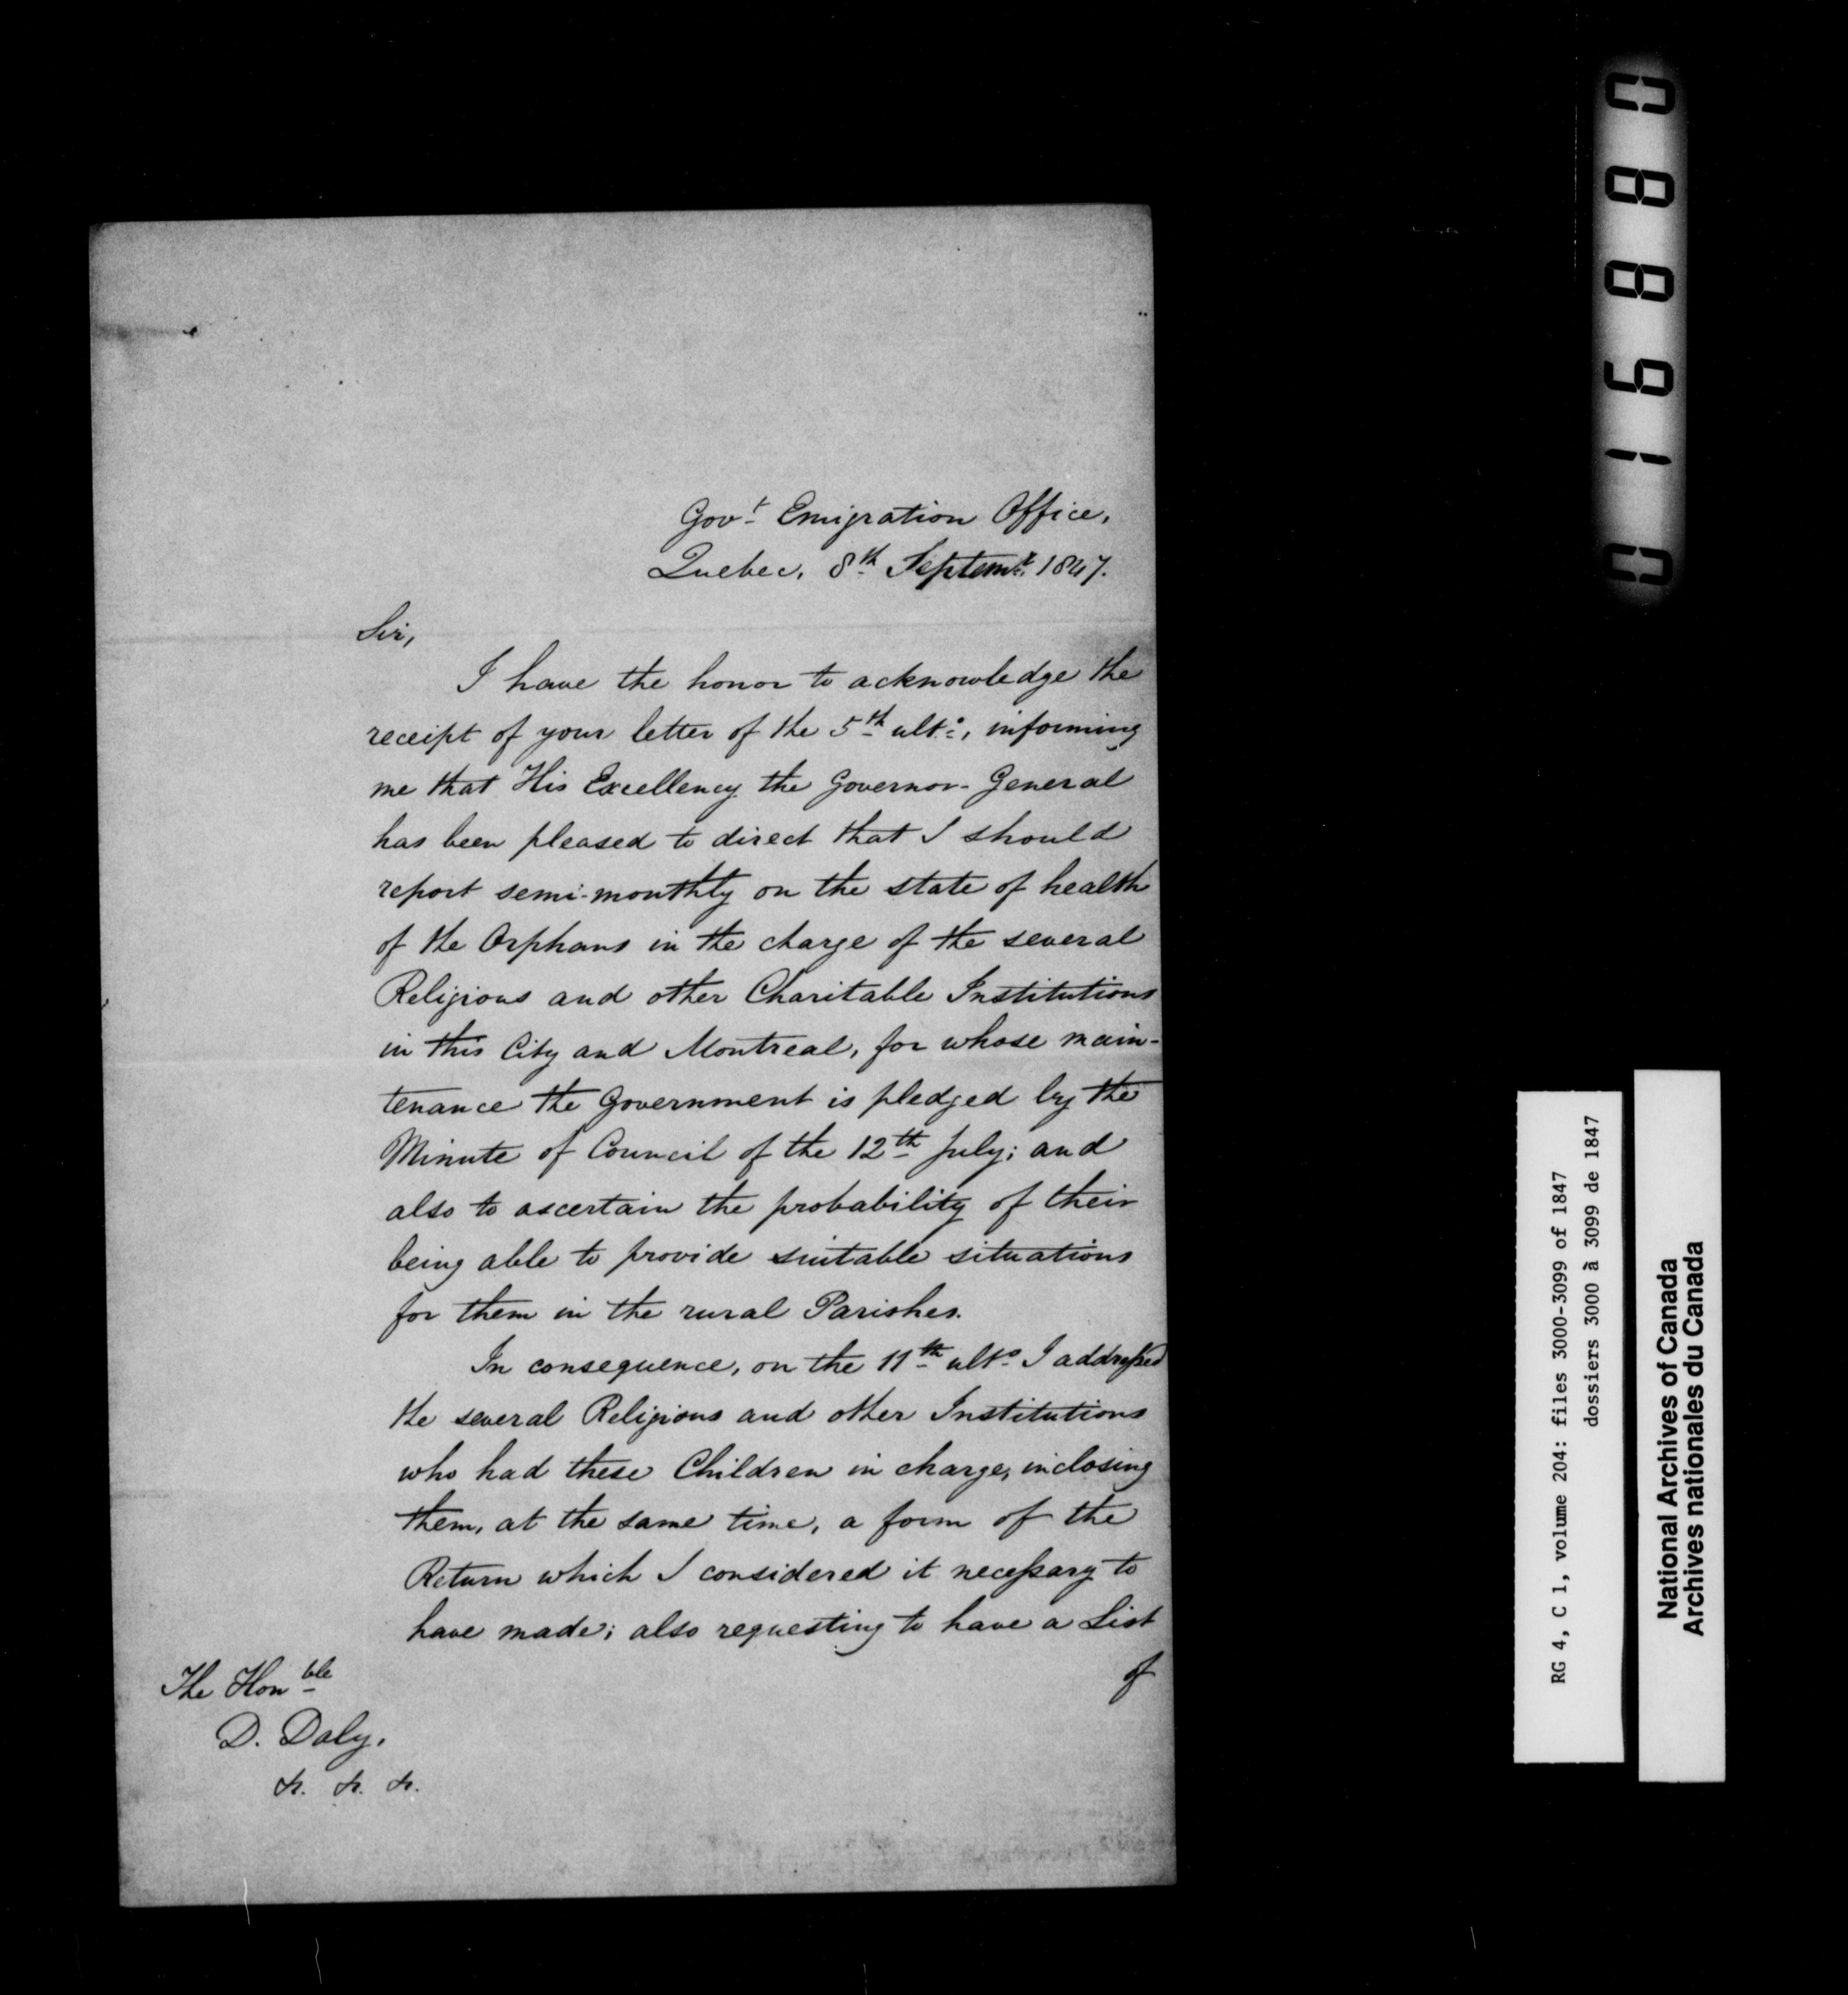 Govt Emigration Office,
Quebec, 8th Septemr. 1847.
Sir,
I have the honor to acknowledge the
receipt of your letter of the 5th ulto, informing
me that His Excellency the Governor-General
has been pleased to direct that I should
report semi-monthly on the state of health
of the Orphans in the charge of the several
Religious and other Charitable Institutions
in this City and Montreal, for whose main-
tenance the Government is pledged by the
Minute of Council of the 12th July; and
also to ascertain the probability of their
being able to provide suitable situations
for them in the rural Parishes.
In consequence, on the 11th ulto I addressed
the several Religious and other Institutions
who had these Children in charge, inclosing
them, at the same time, a form of the
Return which I considered it necessary to
have made; also requesting to have a List
of
The Honble
D. Daly.
&. &. &.
016880
RG 4, C 1, volume 204: files 3000-3099 of 1847
dossiers 3000 à 3099 de 1847
National Archives of Canada
Archives nationales du Canada